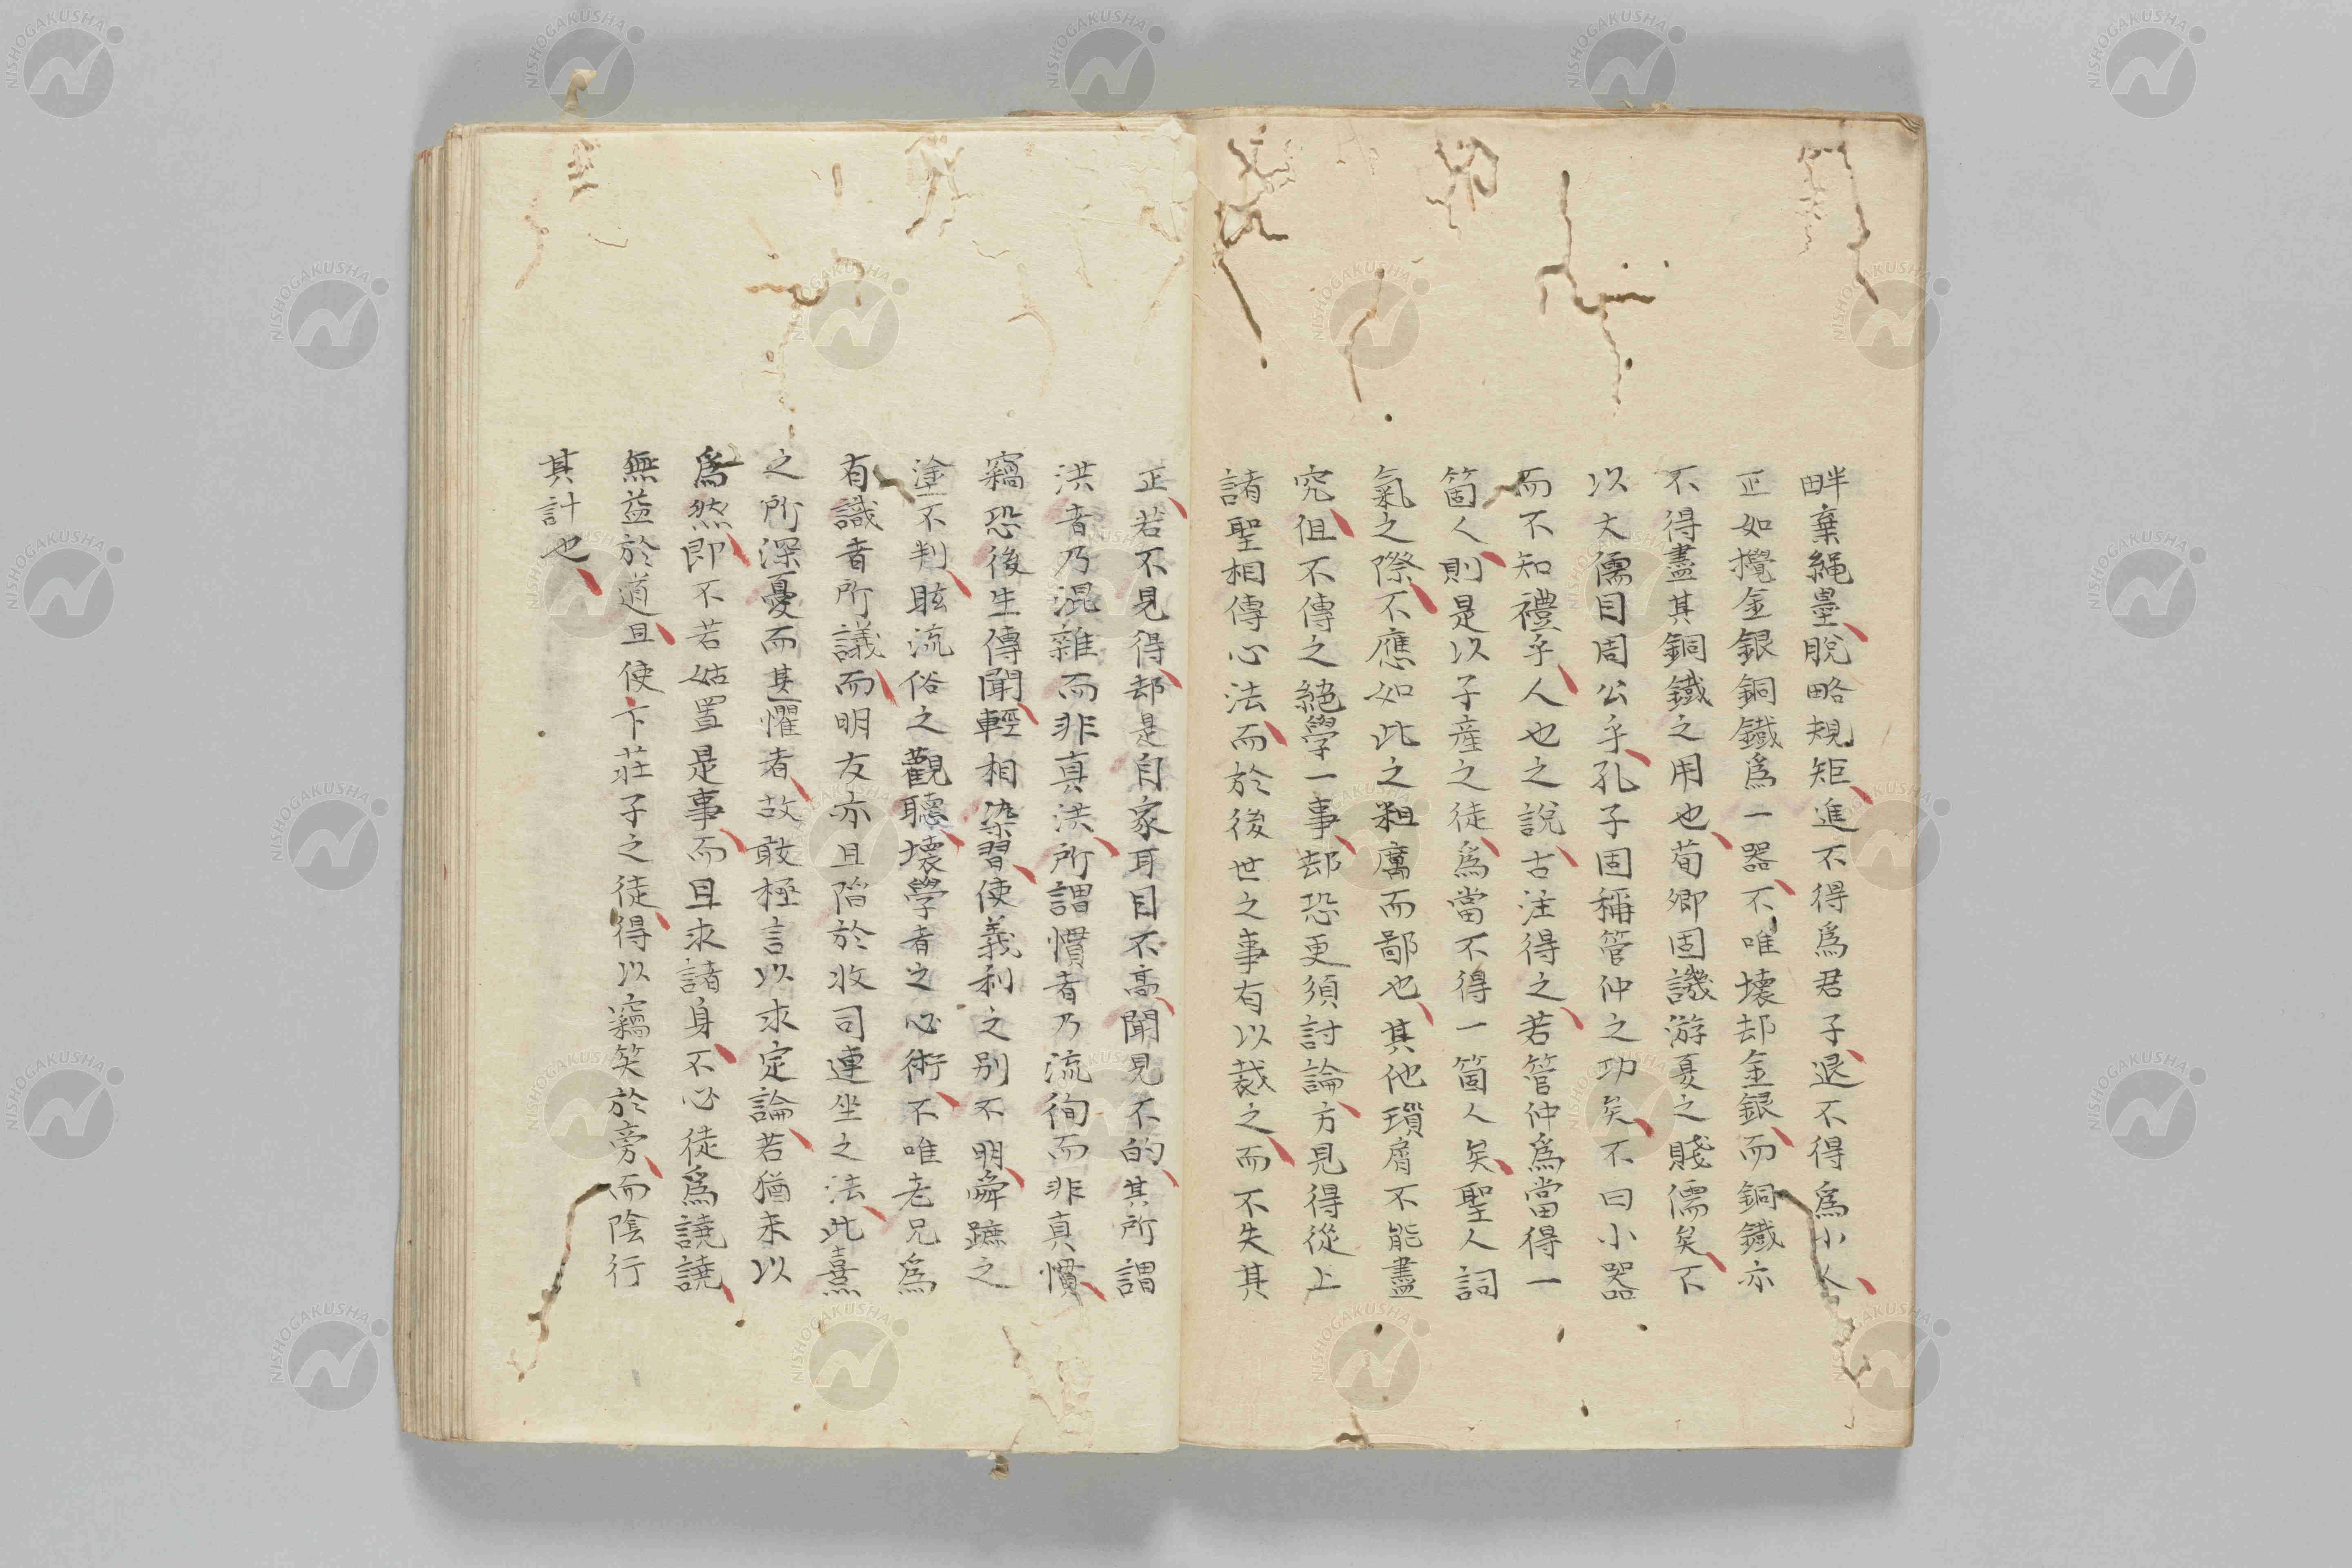 畔棄繩墨脫略規矩進不得爲君子退不得爲小人
正如攪金銀銅鐵爲一器不唯壞却金銀而銅鐵亦
不得盡其銅鐵之用也荀卿固譏游夏之賤儒矣不
以大儒目周公乎孔子固稱管仲之功矣不曰小器
而不知禮乎人也之說古注得之若管仲爲當得一
箇人則是以子產之徒爲當不得一箇人矣聖人詞
氣之際不應如此之粗厲而鄙也其他瑣屑不能盡
究但不傳之絕學一事却恐更須討論方見得從上
諸聖相傳心法而於後世之事有以裁之而不失其
正若不見得却是自家耳目不高聞見不的其所謂
洪者乃混雜而非真洪所謂慣者乃流徇而非真慣
竊恐後生傳聞輕相染習使義利之別不明舜蹠之
塗不判眩流俗之觀聽壞學者之心術不唯老兄爲
有識者所議而明友亦且陷於收司連坐之法此熹
之所深憂而甚懼者故敢極言以求定論若猶未以
爲然即不若姑置是事而且求諸身不必徒爲譊譊
無益於道且使卞莊子之徒得以竊笑於旁而陰行
其計也
NISHOGAKUSHA